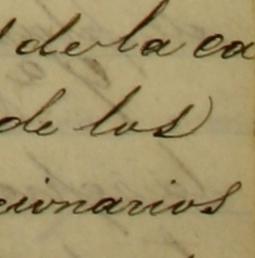 de la ca
de los
cionarios